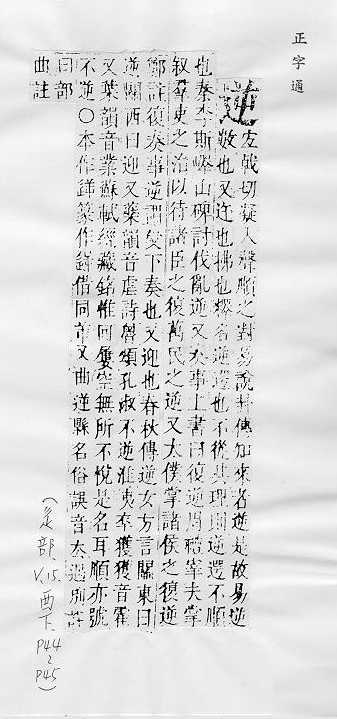 正字通
逆 宜戟切凝入聲順之對易說卦傳知來者逆是故易逆
數也又迕也拂也釋名逆遻也不從其理則逆遻不順
也秦李斯嶧山碑討伐亂逆又奏事上書曰復逆周禮宰夫掌
叙羣吏之治以待諸臣之復萬民之逆又太僕掌諸侯之復逆
鄭註復奏事逆謂受下奏也又迎也春秋傳逆女方言關東曰
逆關西曰迎又藥韻音虐詩魯頌孔淑不逆淮夷卒獲獲音霍
又葉韻音業蘇軾經藏銘惟回屢空無所不悅是名耳順亦號
不逆○本作篆作借同又曲逆縣名俗誤音去遇別詳
曰部
曲註
(辵部
V.15
酉下
P44
～
P45)